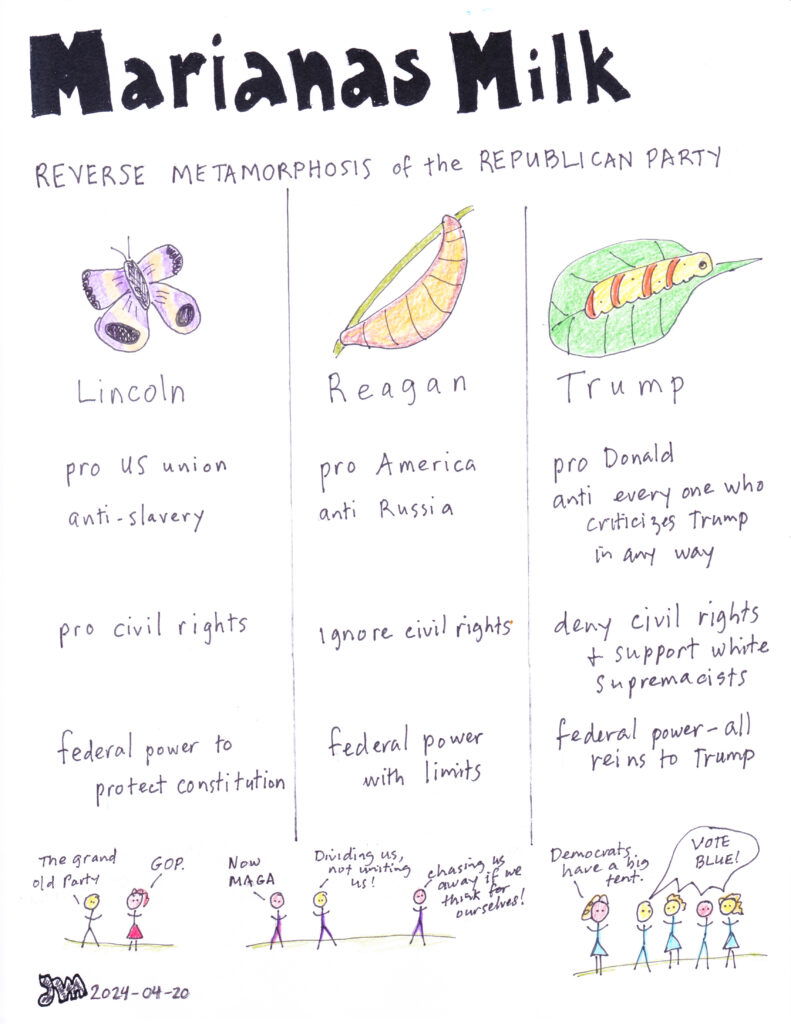 Marianas Milk
REVERSE METAMORPHOSIS of the REPUBLICAN PARTY
Lincoln
pro US union
anti-slavery
pro civil rights
federal power to
protect constitution
Reagan
pro America
anti Russia
ignore civil rights
federal power
with limits
Trump
pro Donald
anti every one who
criticizes Trump
in any way
deny civil rights
+ support white
supremacists
federal power - all
reins to Trump
The grand
old Party
GOP.
Now
MAGA
Dividing us,
not uniting
us!
chasing us
away if we
think for
ourselves!
Democrats
have a big
tent.
VOTE
BLUE!
2024-04-20